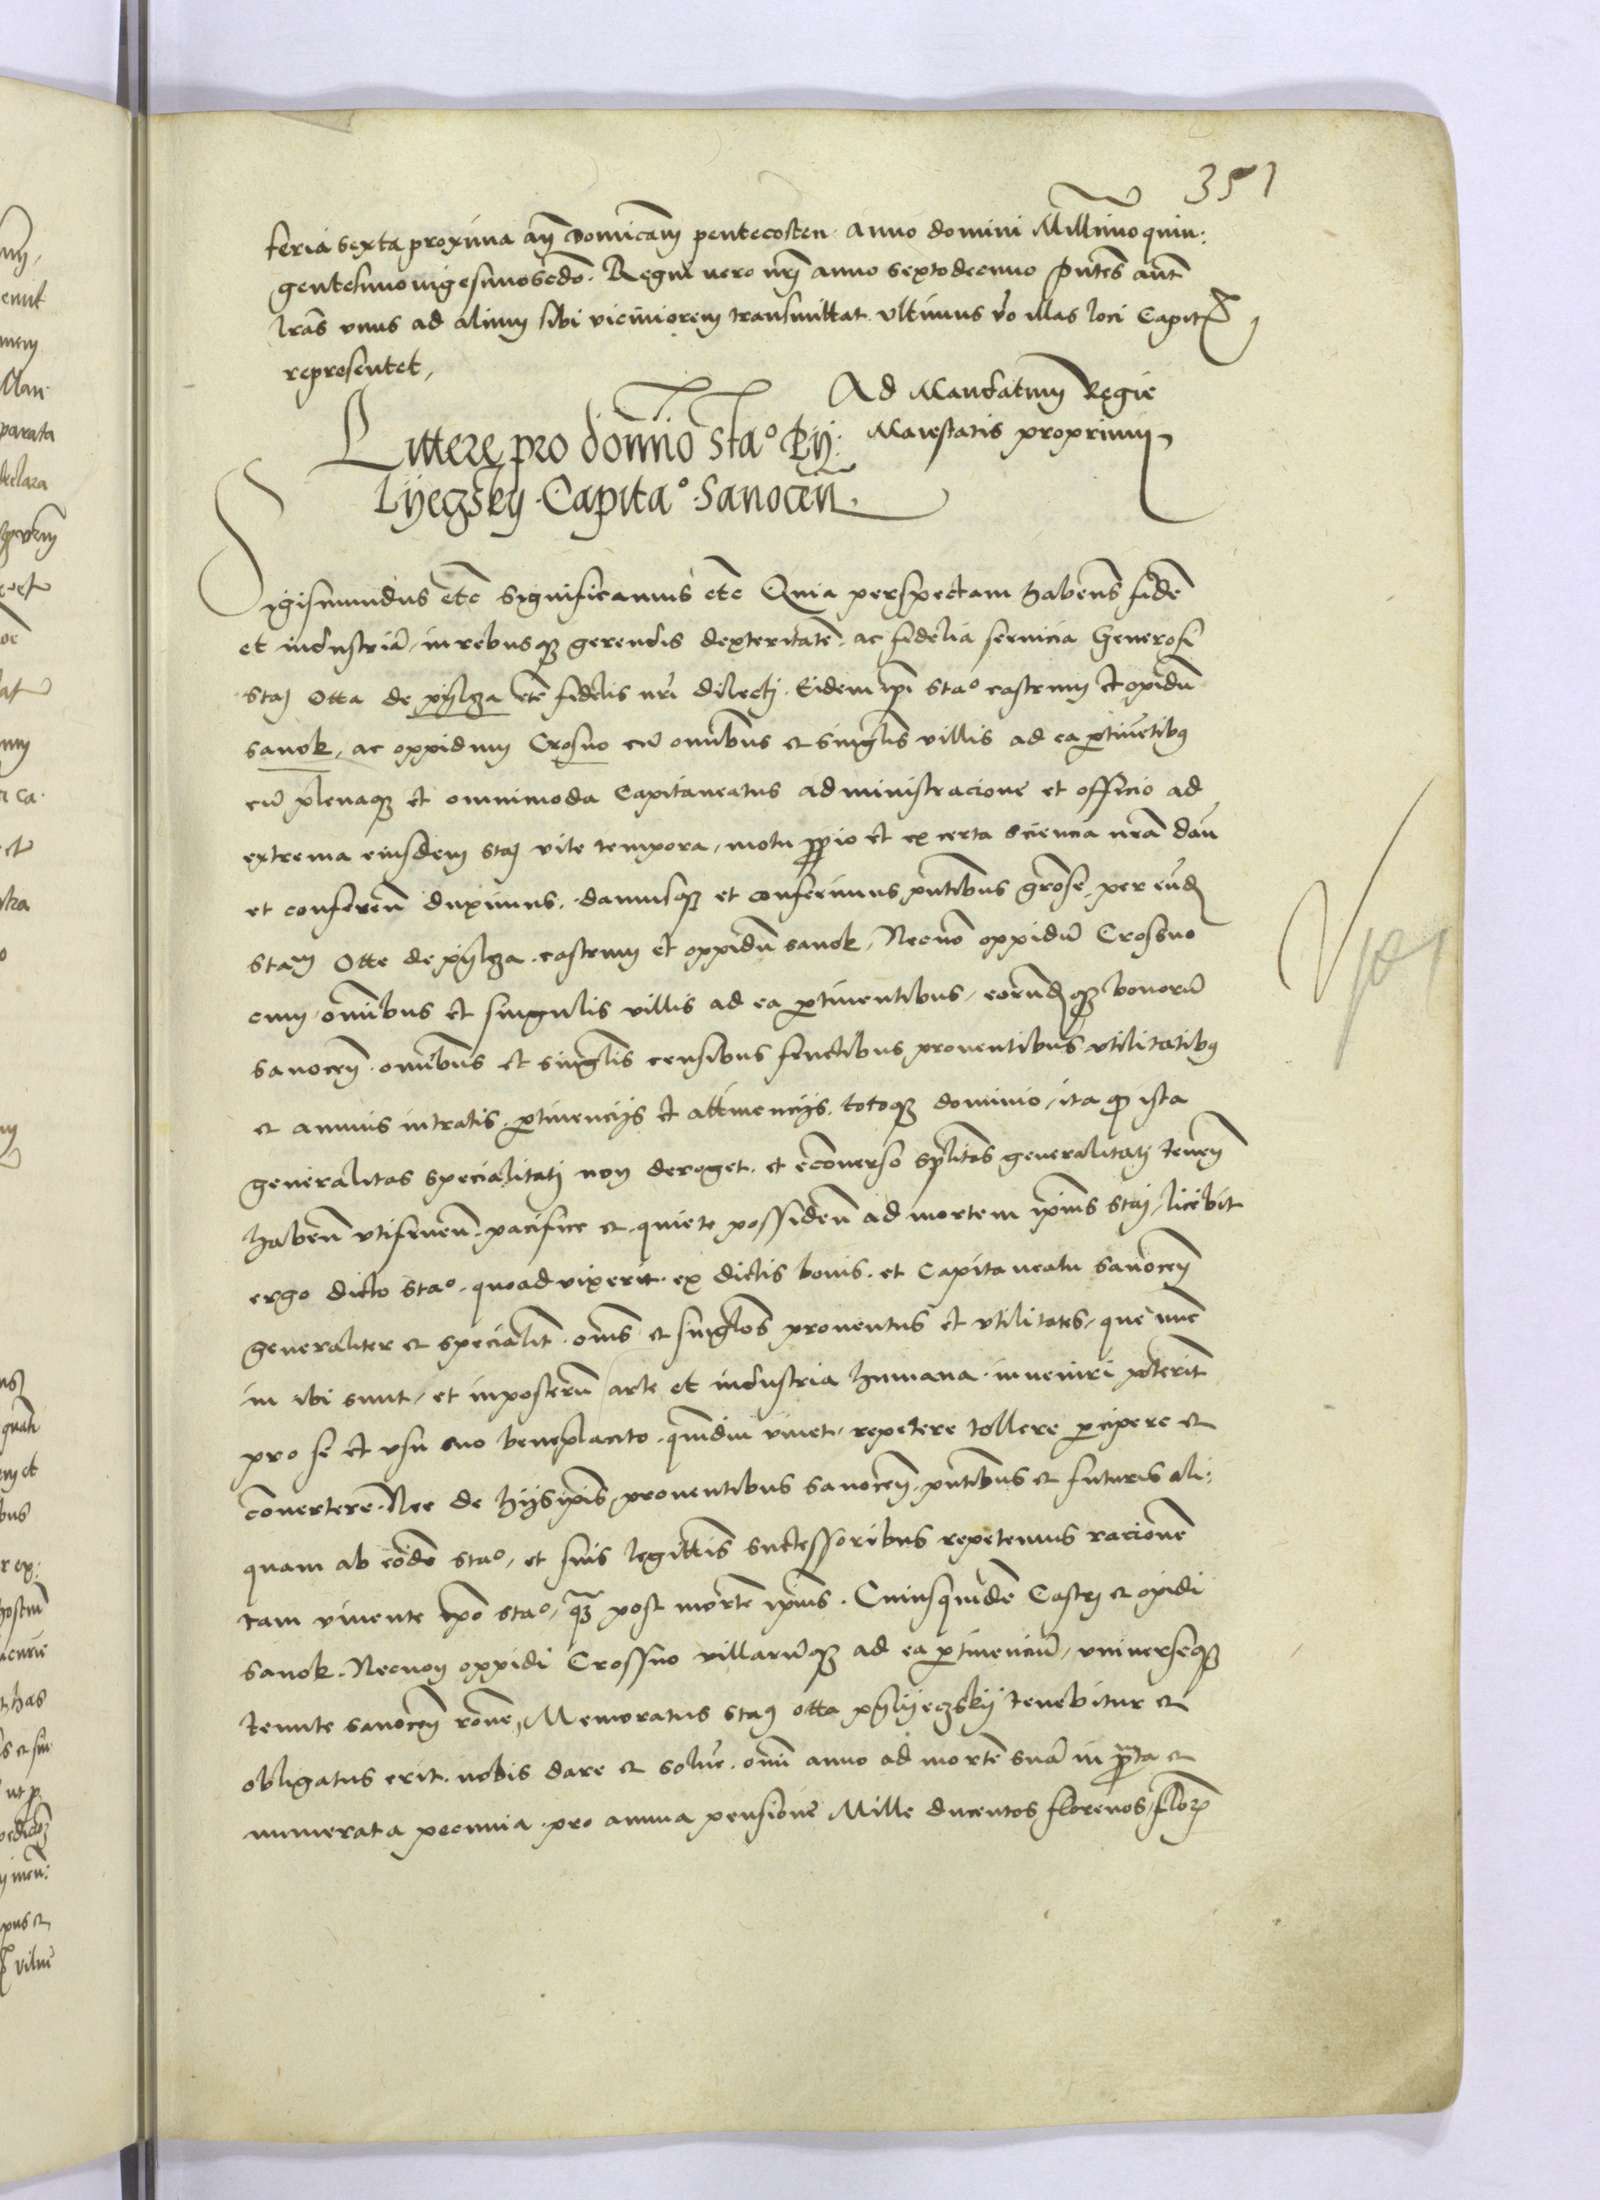 351
feria sexta proxima an̄ Domicam̄ pentecosten · anno domini Millimo quin:
gentesimovigesimosec̄do. Regni vero nr̄i anno sextodecimo pn̄tes aut̄
lr̄as vnus ad alium sibi viciniorem transmittat vltimus vo illas loci Capit
representet,
Ad Mandatum Regie
Maiestatis proprium
Littere pro domīo Stao Py:
Lyeczsky · Capitao · Sanocen̄.
Sigismundus etc̄ Significamus etc̄ Quia perspectam habens fidē
et industriā, in rebusqȝ gerendis dexteritatē · ac fidelia seruicia Generosi
Stai Otta de pylcza etc̄ fidelis nr̄i dilecti · Eidem ip̄i Stao castrum et opidū
Sanok, ac oppidum Crosno cū omībus et singl̄is villis ad ea ꝑtinētibꝰ
cū plenaqȝ et omnimoda Capitaneatus administracione et officio ad
extrema eiusdem Stai vite tempora, motu ꝓprio et ex certa sciencia nr̄a dan̄
et conferen̄ duximus. damusqȝ et conferimus pn̄tibus grose per eūd
Stam Otte de pylcza · castrum et oppidū Sanok, Necnō oppidū Crossno
cum omībus et singulis villis ad ea ꝑtinentibus, eorundqȝ bonorū
Sanocen̄ · omībus et singl̄is censibus fructibus prouentibus vtilitatibꝰ
et annuis intratis, ꝑtinencijs et attinencijs, totoqȝ dominio, ita qȝ ista
generalitas specialitati non deroget · et ecōuerso spl̄itas generalitati tenen̄
haben̄ vtifruen̄ · pacifice et quiete possiden̄ ad mortem ip̄ius Stai, licebit
ergo dicto Stao · quoad vixerit · ex dictis bonis · et Capitaneatu Sanocen̄
generaliter et specialit̄ · om̄s et singl̄os prouentus et vtilitates, que nūc
in ibi sunt, et inposterū arte et industria humana · inueniri poterit
pro se et vsu suo beneplacito · quādiu viuet, repetere tollere ꝑcipere et
cōuertere · Nec de hijs ip̄is prouentibus Sanocen̄ · pn̄tibus et futuris ali:
quam ab eōdē Stao, et suis legittīs successoribus repetemus racionē
tam viuente ip̄o Stao, qȝ post mortē ip̄ius · Cuiusquidē Castri et opidi
Sanok · Necnon oppidi Crossno villarūqȝ ad ea ꝑtinenciū, vniuerseqȝ
tenute Sanocen̄ rōne, Memoratus Staꝰ Otta pylyeczsky tenebitur et
obligatus erit · nobis dare et soluē · omī anno ad mortē suā in ꝑata et
numerata pecunia · pro annua pensionē Mille ducentos florenos, flor